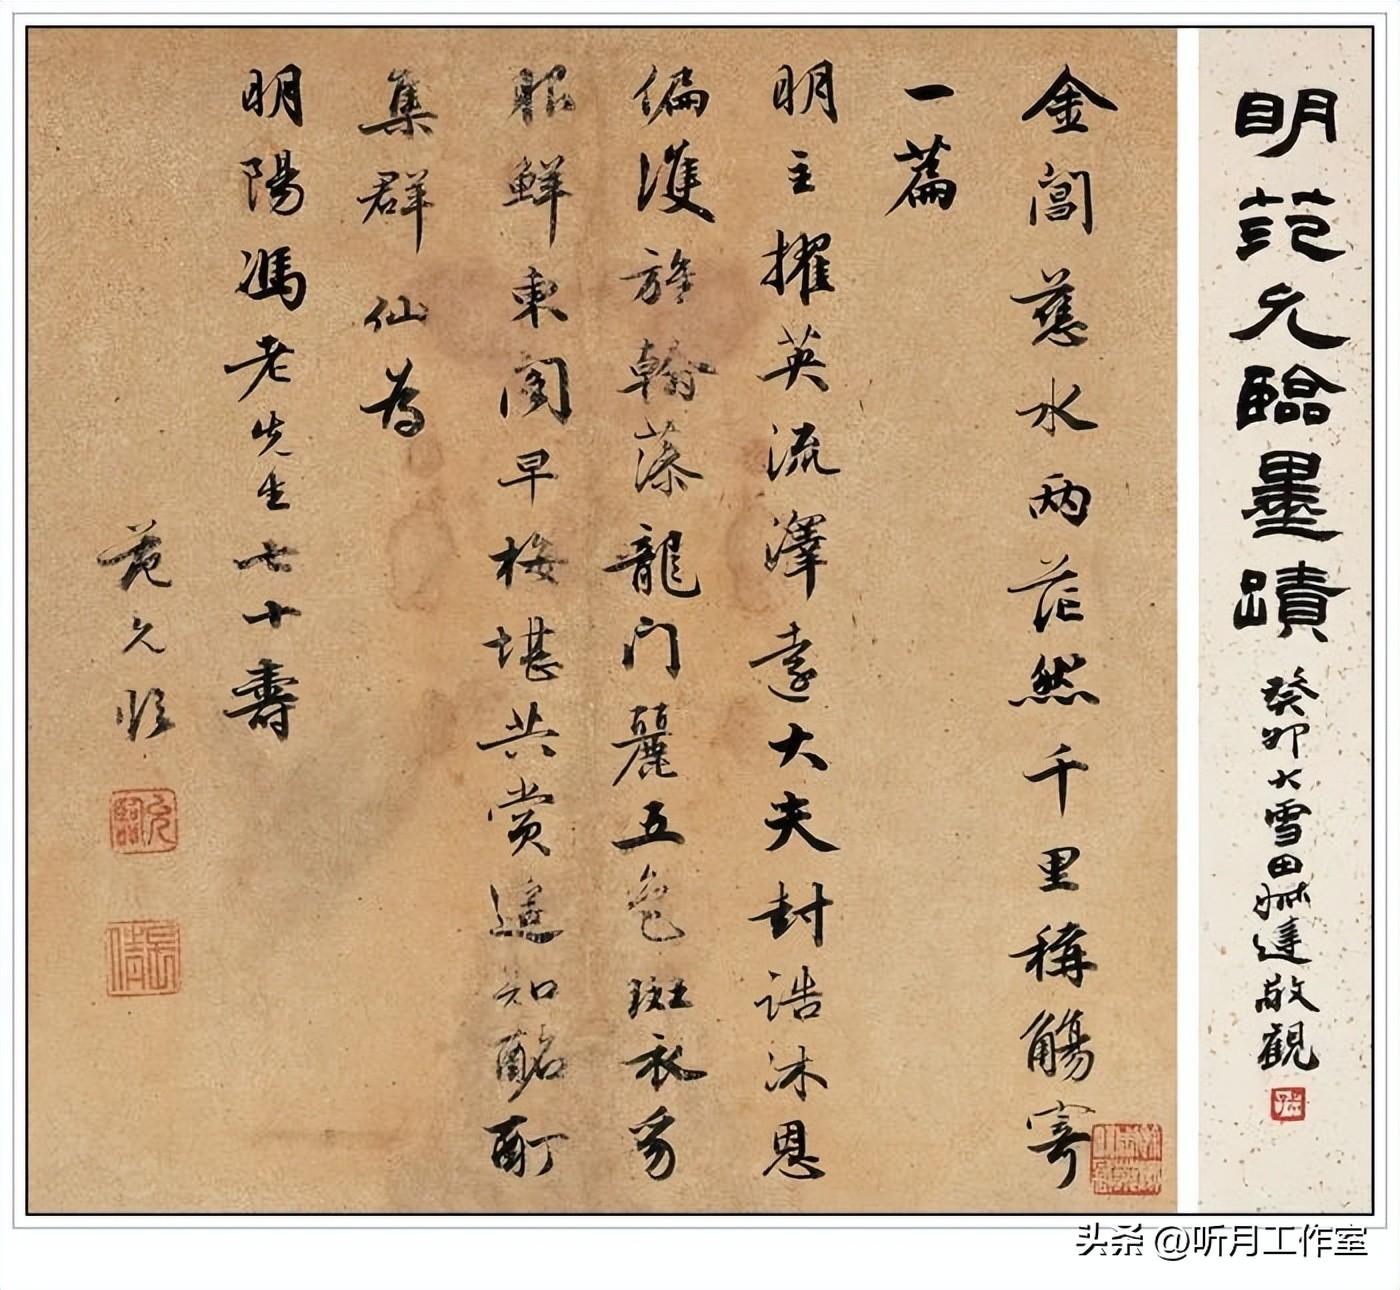 明范允臨墨蹟
癸卯大雪田達敬觀
金閶慈水兩茫然千里稱觴寄
一篇
明主擢英流澤遠大夫封誥沐恩
偏旌翰藻龍門麗五色斑衣豸
服鮮東閣早梅堪共賞遙知酩酊
集群仙為
明陽馮老先生七十壽
范允臨
允臨
長倩
头条 @听月工作室